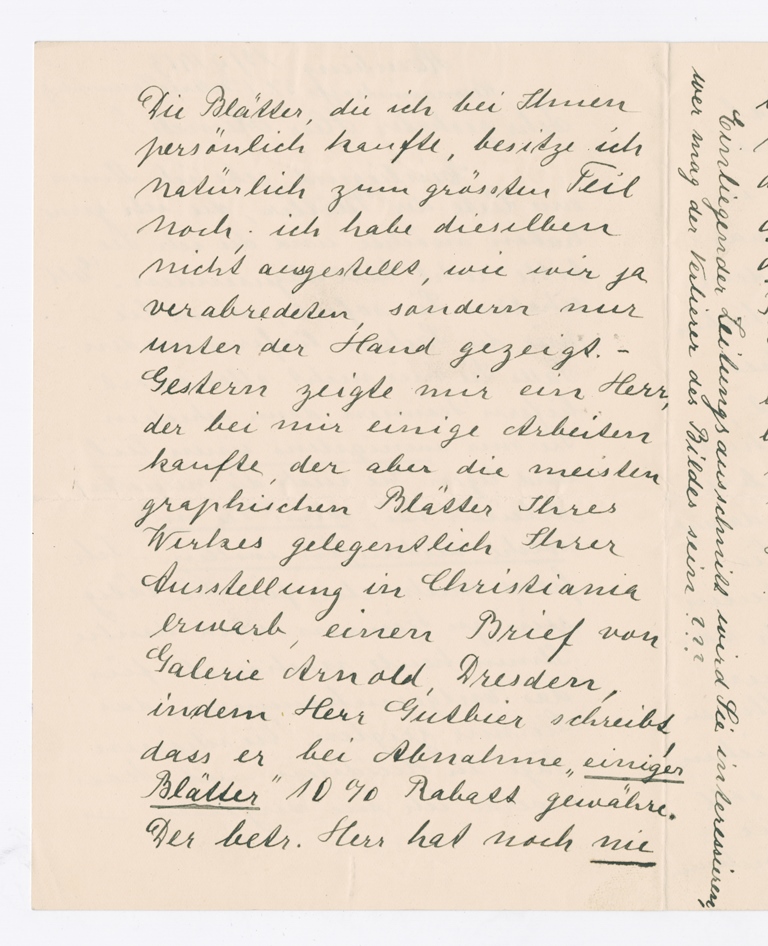 Die Blätter, die ich bei Ihnen
persönlich kaufte, besitze ich
natürlich zum grössten Teil
noch, ich habe dieselben
nicht ausgestellt, wie wir ja
verabredeten, sondern nur
unter der Hand gezeigt. –
Gestern zeigte mir ein Herr,
der bei mir einige Arbeiten
kaufte, der aber die meisten
graphischen Blätter Ihres
Werkes gelegentlich Ihrer
Ausstellung in Christiania
erwarb, einen Brief von
Galerie Arnold, Dresden,
indem Herr Gutbier schreibt,
dass er bei Abnahme „einiger
Blätter" 10 % Rabatt gewähre.
Der betr. Herr hat noch nie
Einliegender Zeitungsausschnitt wird Sie interessieren,
wer mag der Verlierer des Bildes sein ???